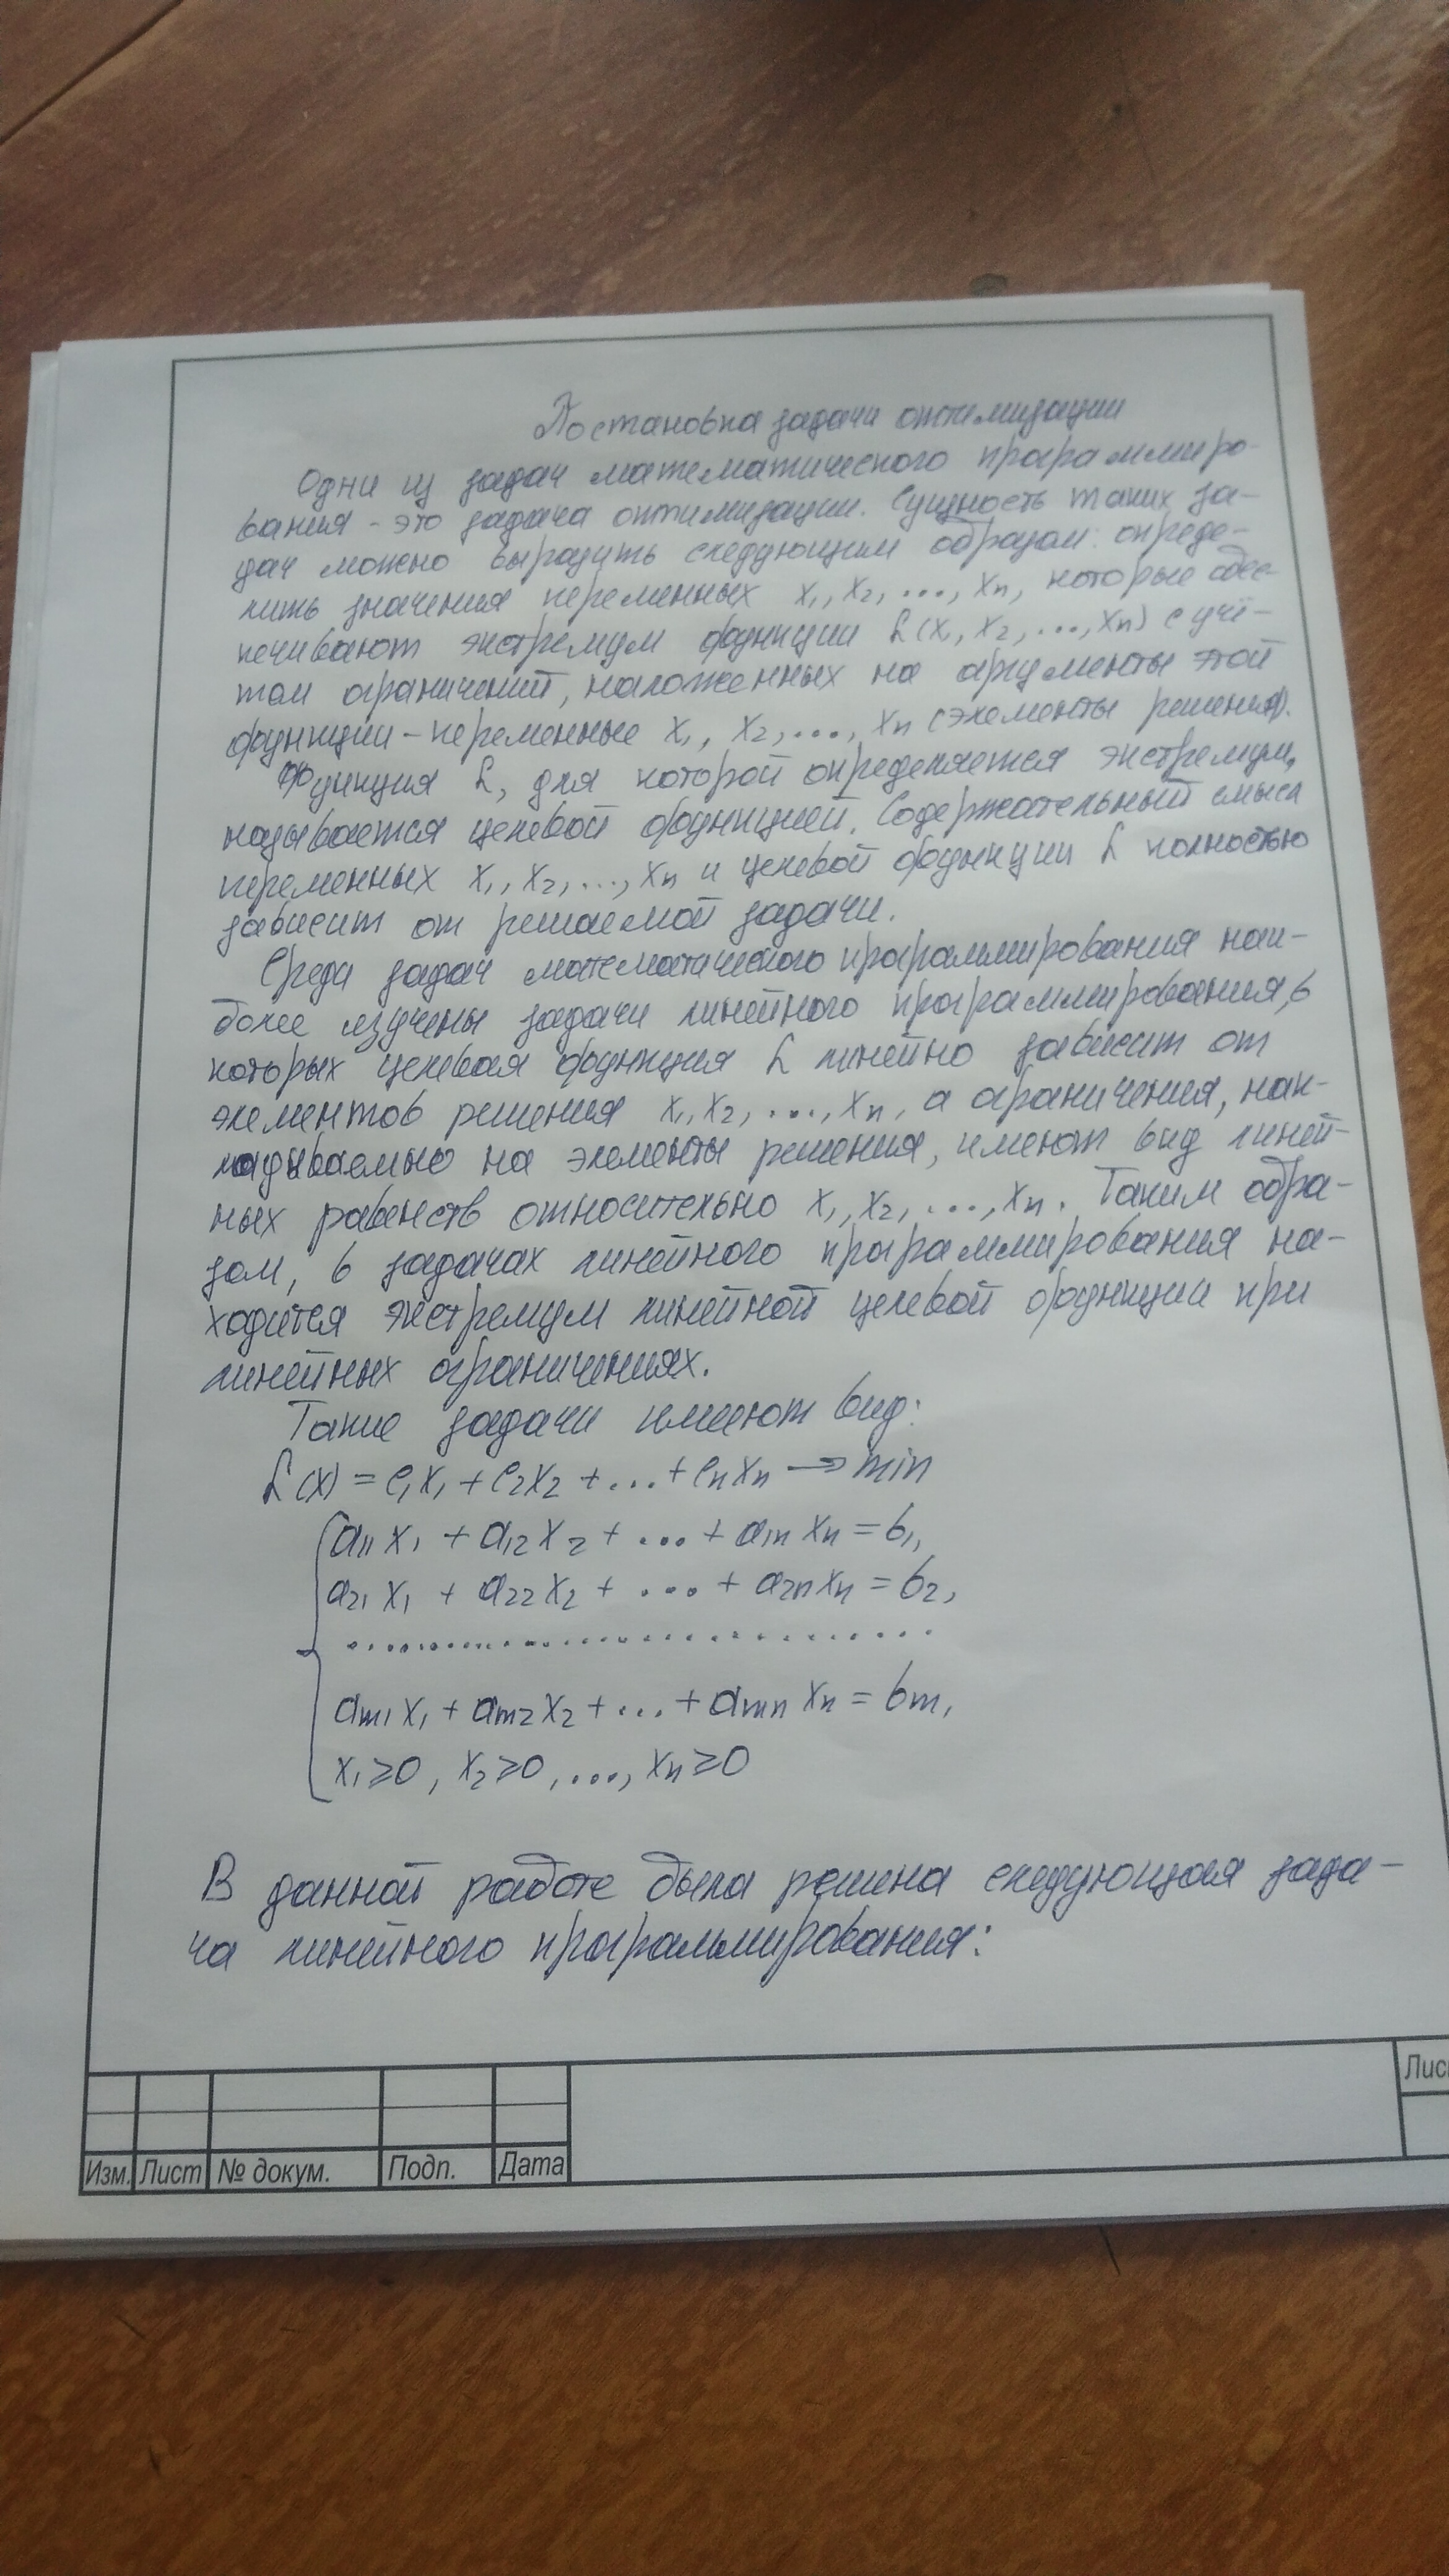 Постановка задачи оптимизации
Одни из задач математического программиро-
вания - это задача оптимизации. Сущность таких за-
дач можно выразить следующим образом: опреде-
лить значения переменных x₁, x₂, ..., xn, которые обес-
печивают экстремум функции L(x₁, x₂, ..., xn) с учё-
том ограничений, наложенных на аргументы этой
функции - переменные x₁, x₂, ..., xn (элементы решения).
Функция L, для которой определяется экстремум,
называется целевой функцией. Содержательный смысл
переменных x₁, x₂, ..., xn и целевой функции L полностью
зависит от решаемой задачи.
Среди задач математического программирования наи-
более изучены задачи линейного программирования, в
которых целевая функция L линейно зависит от
элементов решения x₁, x₂, ..., xn, а ограничения, нак-
ладываемые на элементы решения, имеют вид линей-
ных равенств относительно x₁, x₂, ..., xn. Таким обра-
зом, в задачах линейного программирования на-
ходится экстремум линейной целевой функции при
линейных ограничениях.
Такие задачи имеют вид:
L(x) = c₁x₁ + c₂x₂ + ... + cnxn → min
a₁₁x₁ + a₁₂x₂ + ... + a₁nxn = b₁,
a₂₁x₁ + a₂₂x₂ + ... + a₂nxn = b₂,
..............................
am₁x₁ + am₂x₂ + ... + amnxn = bm,
x₁ ≥ 0, x₂ ≥ 0, ..., xn ≥ 0
В данной работе была решена следующая зада-
ча линейного программирования:
Лис
Изм. Лист № докум. Подп. Дата